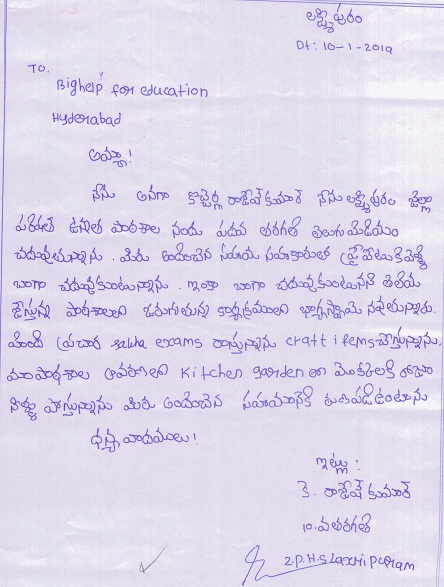 లక్ష్మీపురం
Dt: 10-1-2019
TO.
Bighelp for education
Hyderabad
అమ్మా!
నేను అనగా కొచ్చెర్ల రాజేష్ కుమార్ నేను లక్ష్మీపురం జిల్లా
పరిషత్ ఉన్నత పాఠశాల నందు పదవ తరగతి తెలుగుమీడియం
చదువుతున్నాను. మీరు అందించిన సహాయ సహకారంతో ప్రైవేటుకి వెళ్ళి
బాగా చదువుకుంటున్నాను. ఇంకా బాగా చదువుకుంటునని తెలియ
చేస్తున్న పాఠశాలలో జరుగుతున్న కార్యక్రమంలో భాగస్వామి
హింది ప్రచార sabha exams రాస్తున్నాను craft items చేస్తున్నాను.
మా పాఠశాల ఆవరణలో Kitchen garden లో మొక్కలకి రోజూ
నీళ్ళు పోస్తున్నాను మీరు అందించిన సహాయానికి రుణపడి ఉంటాను
ధన్యవాదములు!
ఇట్లు:
కె. రాజేష్ కుమార్
10.వతరగతి
Z.P.H.S Laxmipuram